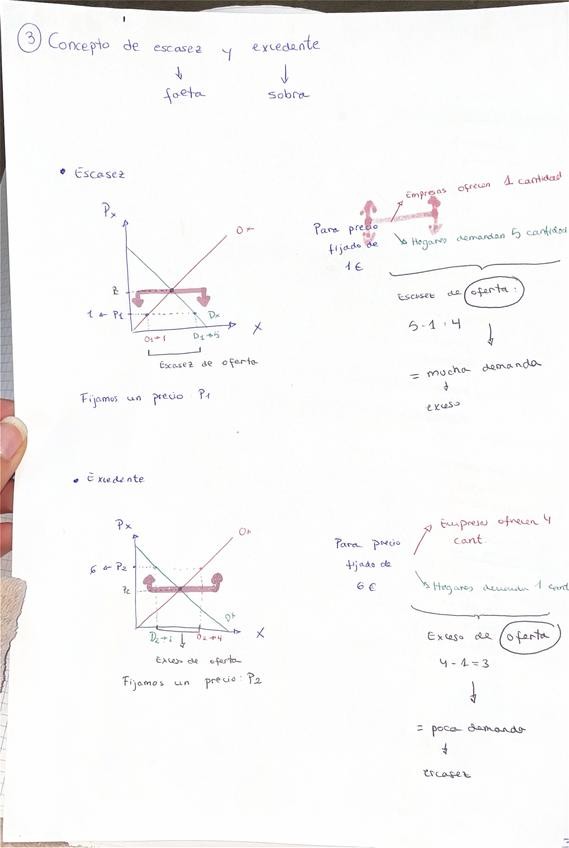 3 Concepto de escasez y excedente
falta sobra
• Escasez
Px
Ox
2
1 ← P1
Dx
X
O1→1 D1→5
Escasez de oferta
Fijamos un precio P1
Para precio fijado de 1€
Empresas ofrecen 1 cantidad
Hogares demandan 5 cantidad
Escasez de oferta:
5-1:4
= mucha demanda
exceso
• Excedente
Px
Ox
6 ← P2
Dx
X
D2→1 O2→4
Exceso de oferta
Fijamos un precio: P2
Para precio fijado de 6€
Empresas ofrecen 4 cant.
Hogares demandan 1 cant
Exceso de oferta
4-1=3
= poca demanda
escasez